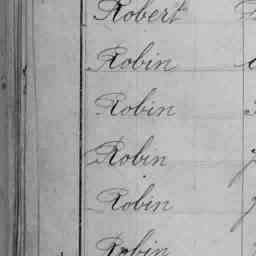 Robert
Robin
Robin
Robin
Robin
Robin